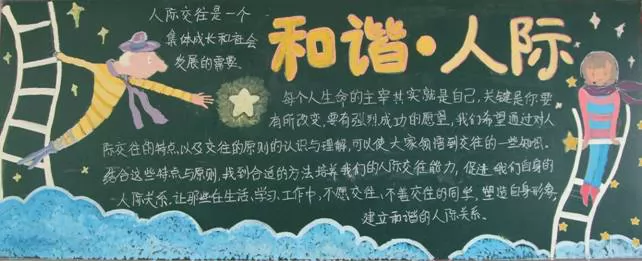 人际交往是一个
集体成长和社会
发展的需要。
和谐·人际
每个人生命的主宰其实就是自己,关键是你要
有所改变,要有强烈成功的愿望,我们希望通过对人
际交往的特点,以及交往的原则的认识与理解,可以使大家领悟到交往的一些知识。
结合这些特点与原则,找到合适的方法培养我们的人际交往能力,促进我们自身的
人际关系,让那些在生活、学习、工作中,不愿交往、不善交往的同学,塑造自身形象,
建立和谐的人际关系。